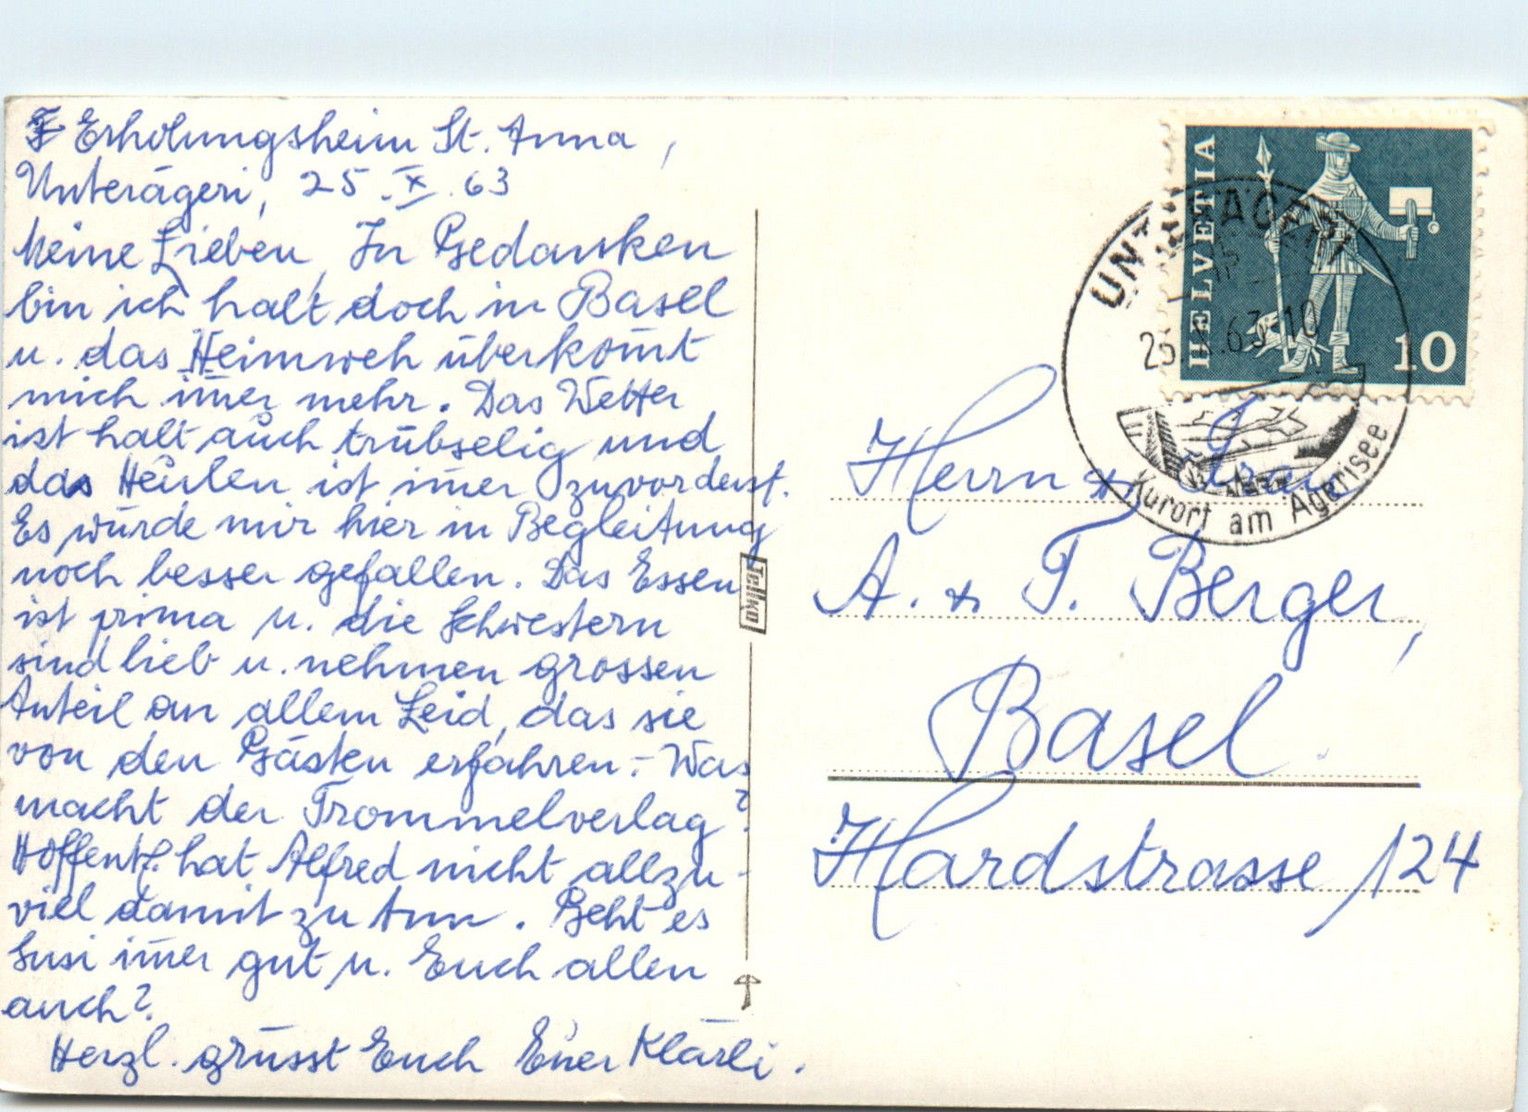 Erholungsheim St. Anna,
Unterägeri, 25.X.63
Meine Lieben, In Gedanken
bin ich halt doch in Basel
u. das Heimweh überkom̄t
mich im̄er mehr. Das Wetter
ist halt auch trübselig und
das Heulen ist im̄er zuvorderst.
Es würde mir hier in Begleitung
noch besser gefallen. Das Essen
ist prima u. die Schwestern
sind lieb u. nehmen grossen
Anteil an allem Leid, das sie
von den Gästen erfahren. - Was
macht der Trommelverlag?
Hoffentl. hat Alfred nicht allzu-
viel damit zu tun. Geht es
Susi im̄er gut u. Euch allen
auch?
Herzl. grüsst Euch Euer Klärli.
Jellko
HELVETIA
10
UNTERÄGERI
25.X.63-10
Kurort am Ägerisee
Herrn & Frau
A. & T. Berger,
Basel.
Hardstrasse 124